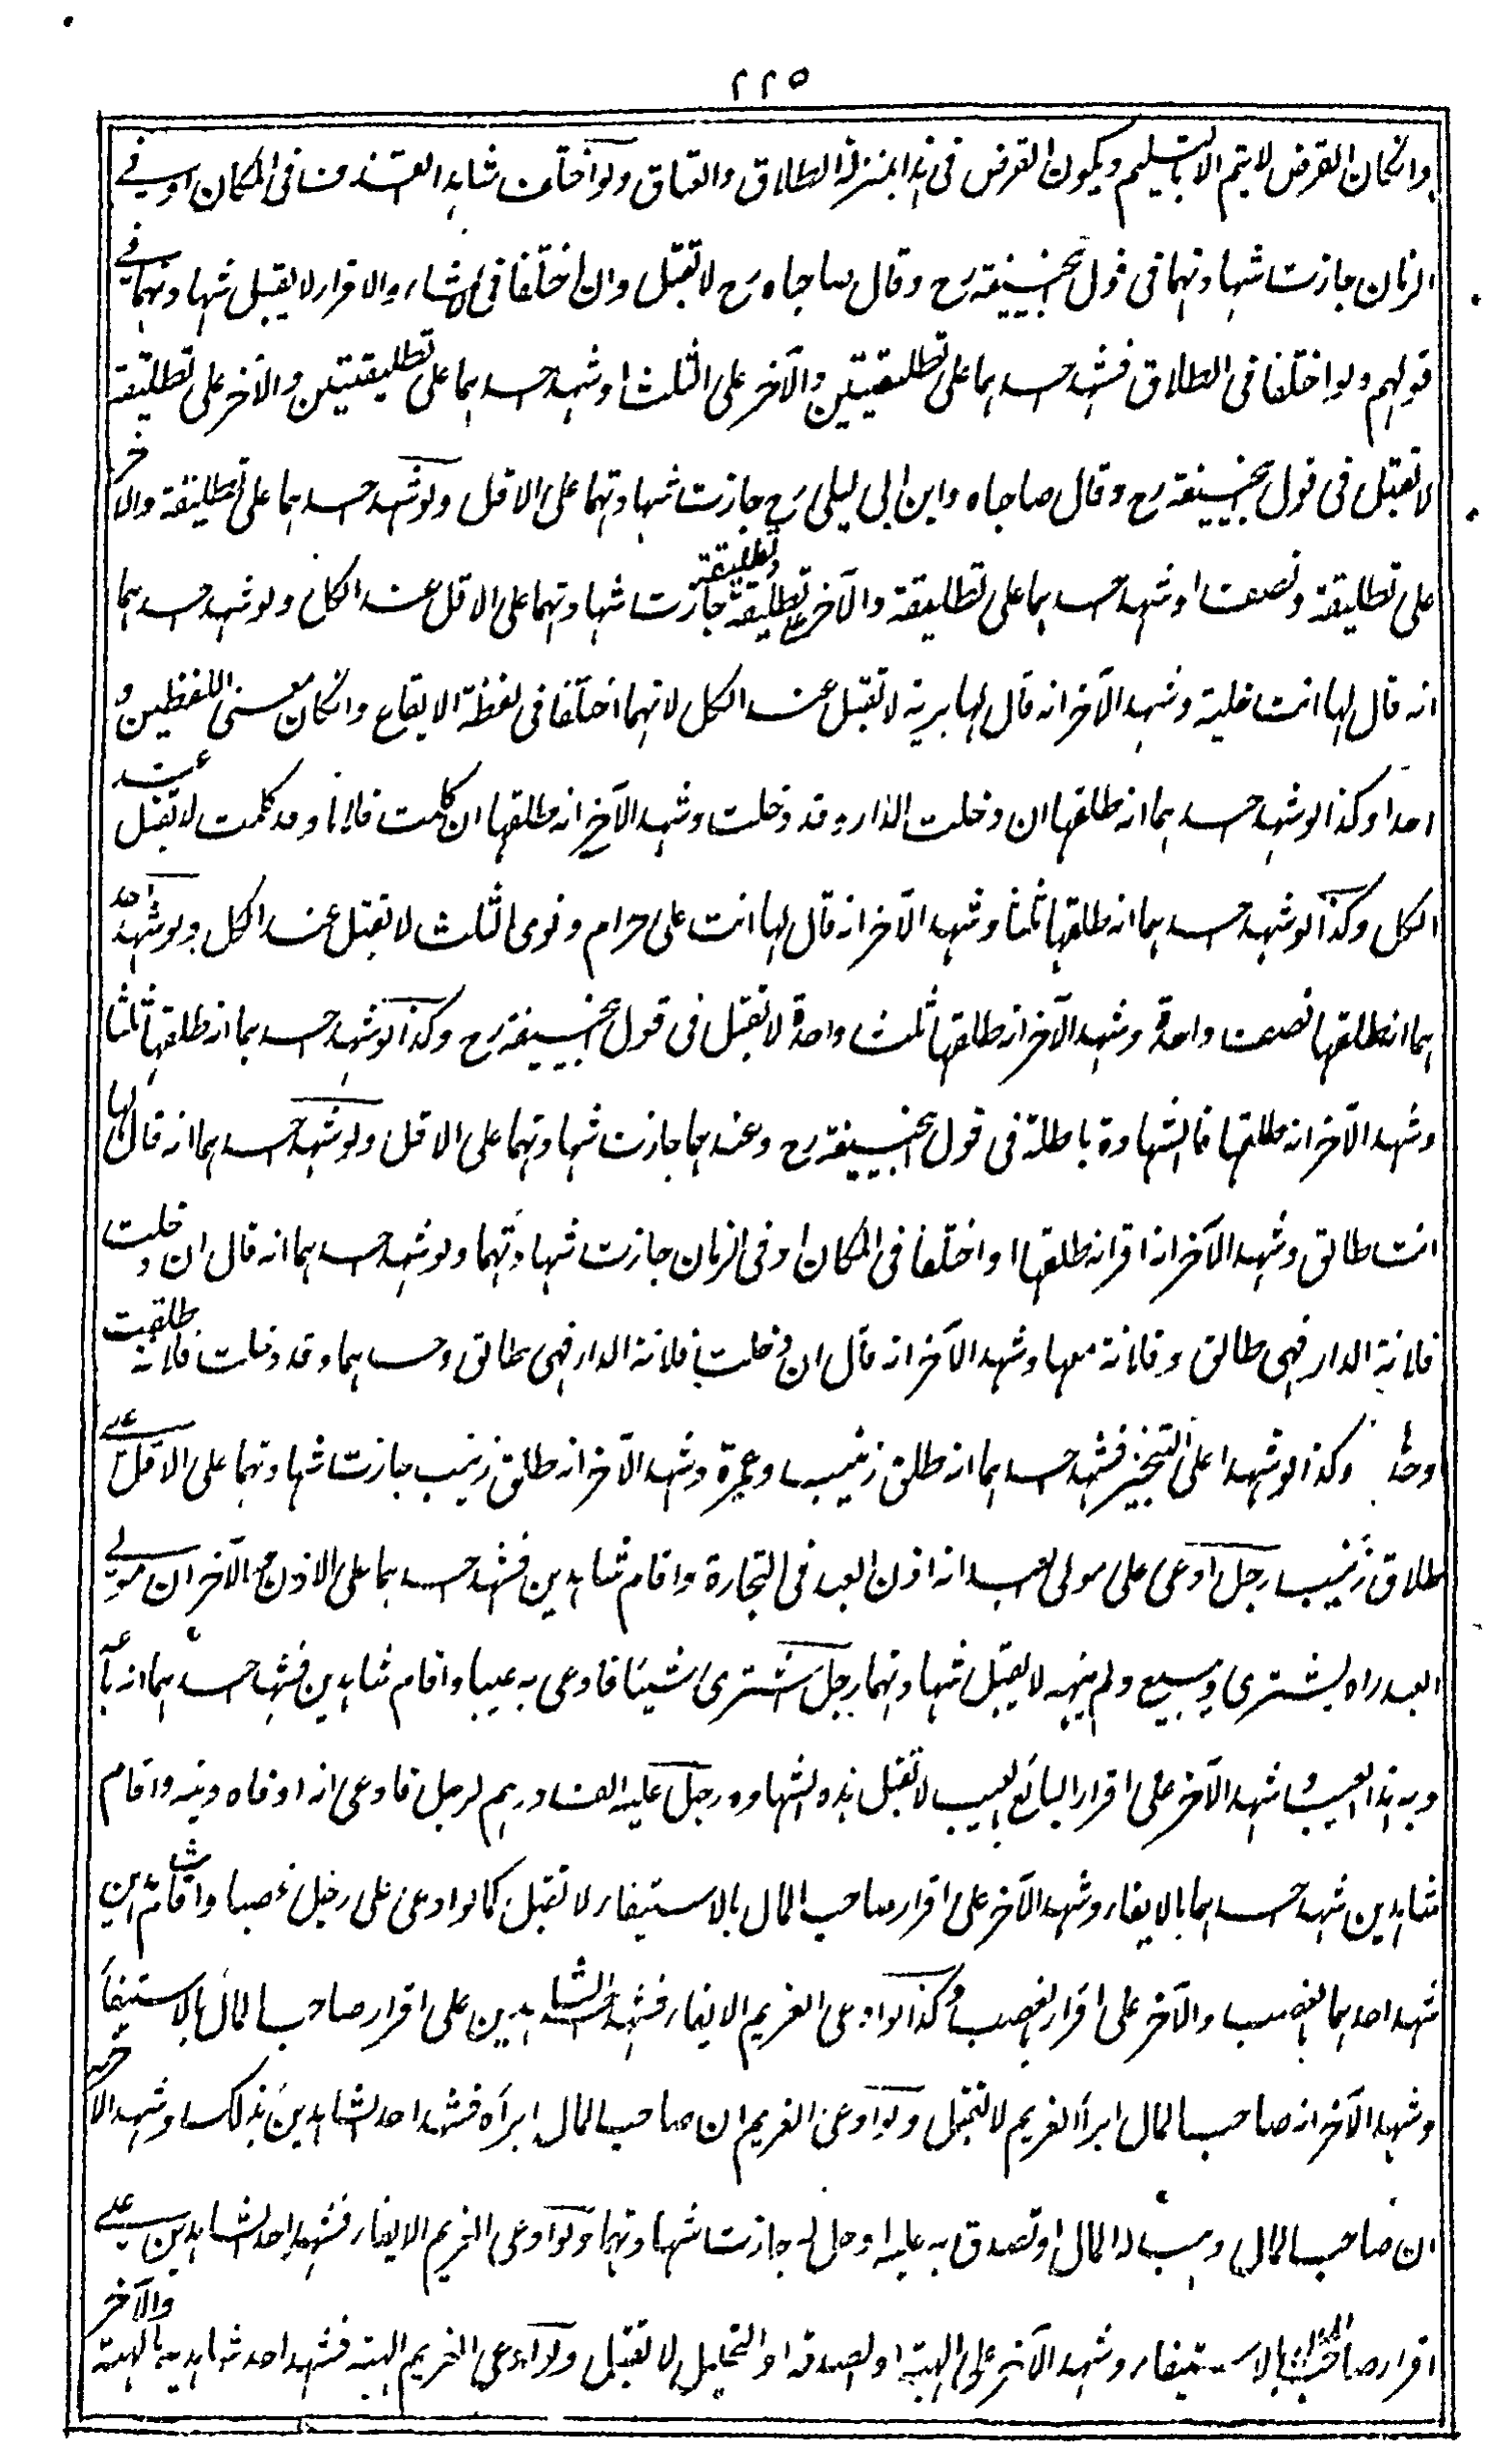 ٢٢٥
وانكان القرض لا يتم الا بالتسليم ويكون القرض فى هذا بمنزلة الطلاق والعتاق ولو اختلف شاهدا القذف فى المكان او في
الزمان جازت شهادتهما فى قول ابيحنيفة رح وقال صاحباه رح لا تقبل وان اختلفا فى الانشاء والاقرار لا يقبل شهادتهما في
قولهم ولو اختلفا فى الطلاق فشهد احدهما على تطليقتين والآخر على الثلث او شهد احدهما على تطليقتين والآخر على تطليقة
لا تقبل فى قول ابيحنيفة رح وقال صاحباه وابن ابى ليلى رح جازت شهادتهما على الاقل ولو شهد احدهما على تطليقة والآخر
على تطليقة ونصف او شهد احدهما على تطليقة والآخر على تطليقة وتطليقة جازت شهادتهما على الاقل عند الكل ولو شهد احدهما
انه قال لها انت خلية وشهد الآخر انه قال لها برية لا تقبل عند الكل لانهما اختلفا فى لفظة الايقاع وانكان معنى اللفظين و
احدا وكذا لو شهد احدهما انه طلقها ان دخلت الدار وقد دخلت وشهد الآخر انه طلقها ان كلمت فلانا وقد كلمت لا تقبل عند
الكل وكذا لو شهد احدهما انه طلقها ثلثا وشهد الآخر انه قال لها انت على حرام ونوى الثلث لا تقبل عند الكل ولو شهد احد
هما انه طلقها نصف واحدة وشهد الآخر انه طلقها ثلث واحدة لا تقبل فى قول ابيحنيفة رح وكذا لو شهد احدهما انه طلقها ثلثا
وشهد الآخر انه طلقها فالشهادة باطلة فى قول ابيحنيفة رح وعندهما جازت شهادتهما على الاقل ولو شهد احدهما انه قال لها
انت طالق وشهد الآخر انه اقر انه طلقها او اختلفا فى المكان او فى الزمان جازت شهادتهما ولو شهد احدهما انه قال ان دخلت
فلانة الدار فهى طالق وفلانة معها وشهد الآخر انه قال ان دخلت فلانة الدار فهى طالق وحدها وقد دخلت فلانة طلقت
وحدها وكذا لو شهدا على التنجيز فشهد احدهما انه طلق زينب وعمرة وشهد الآخر انه طلق زينب جازت شهادتهما على الاقل على
طلاق زينب رجل ادعى على مولى عبد انه اذن العبد فى التجارة واقام شاهدين فشهد احدهما على الاذن والآخر ان مولى
العبد راه يشترى ويبيع ولم ينهه لا يقبل شهادتهما رجل اشترى شيئا فادعى به عيبا واقام شاهدين فشهد احدهما انه باعه
وبه هذا العيب وشهد الآخر على اقرار البائع بالعيب لا تقبل هذه الشهادة رجل عليه الف درهم لرجل فادعى انه اوفاه دينه واقام
شاهدين شهد احدهما بالايفاء وشهد الآخر على اقرار صاحب المال بالاستيفاء لا تقبل كما لو ادعى على رجل غصبا واقام شاهدين
شهد احدهما بالغصب والآخر على اقراره بالغصب وكذا لو ادعى الغريم الايفاء فشهد احد الشاهدين على اقرار صاحب المال بالاستيفاء
وشهد الآخر انه صاحب المال ابرأ الغريم لا تقبل ولو ادعى الغريم ان صاحب المال ابرأه فشهد احد الشاهدين بذلك وشهد الآخر
ان صاحب المال وهب له المال او تصدق به عليه او حل له جازت شهادتهما ولو ادعى الغريم الايفاء فشهد احد الشاهدين على
اقرار صاحب المال بالاستيفاء وشهد الآخر على الهبة او الصدقة او التحليل لا تقبل ولو ادعى الغريم الهبة فشهد احد شاهديه بالهبة والآخر